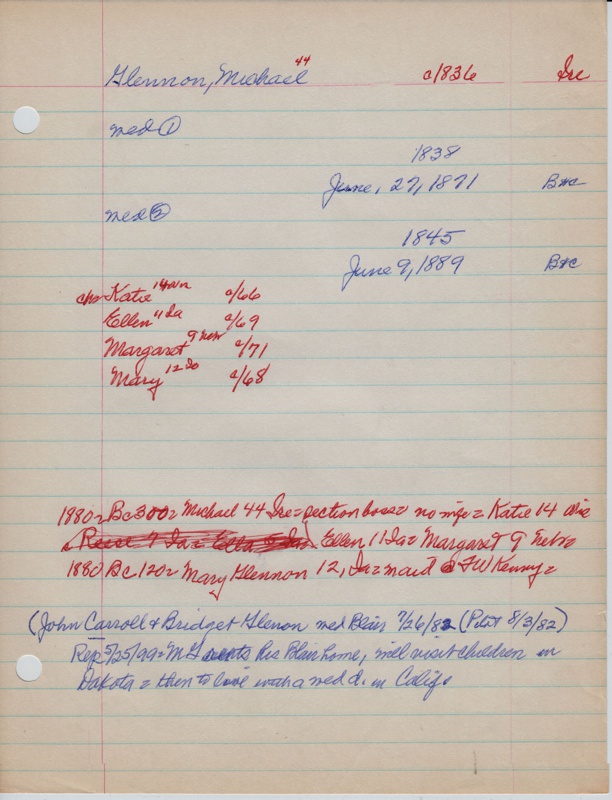 Glennon, Michael 44 c/836 Ire
med ①
1838
June, 27, 1871 B#C
med ②
1845
June 9, 1889 B#C
chn Katie 14 c/66
Ellen 11 Ia c/69
Margaret 9 Neb c/71
Mary 12 Io c/68
1880= Bc 300= Michael 44 Ire= section boss= no mge= Katie 14
Ellen 11 Ia= Margaret 9 Neb=
1880 Bc 120= Mary Glennon 12, Io= maid @ F W Kenny=
(John Carroll & Bridget Glenon med Blair 7/26/82 (Pilot 8/3/82)
Rep 5/25/99= M G his Blair home, will visit children in
Dakota= then to live with a med d. in Calif.